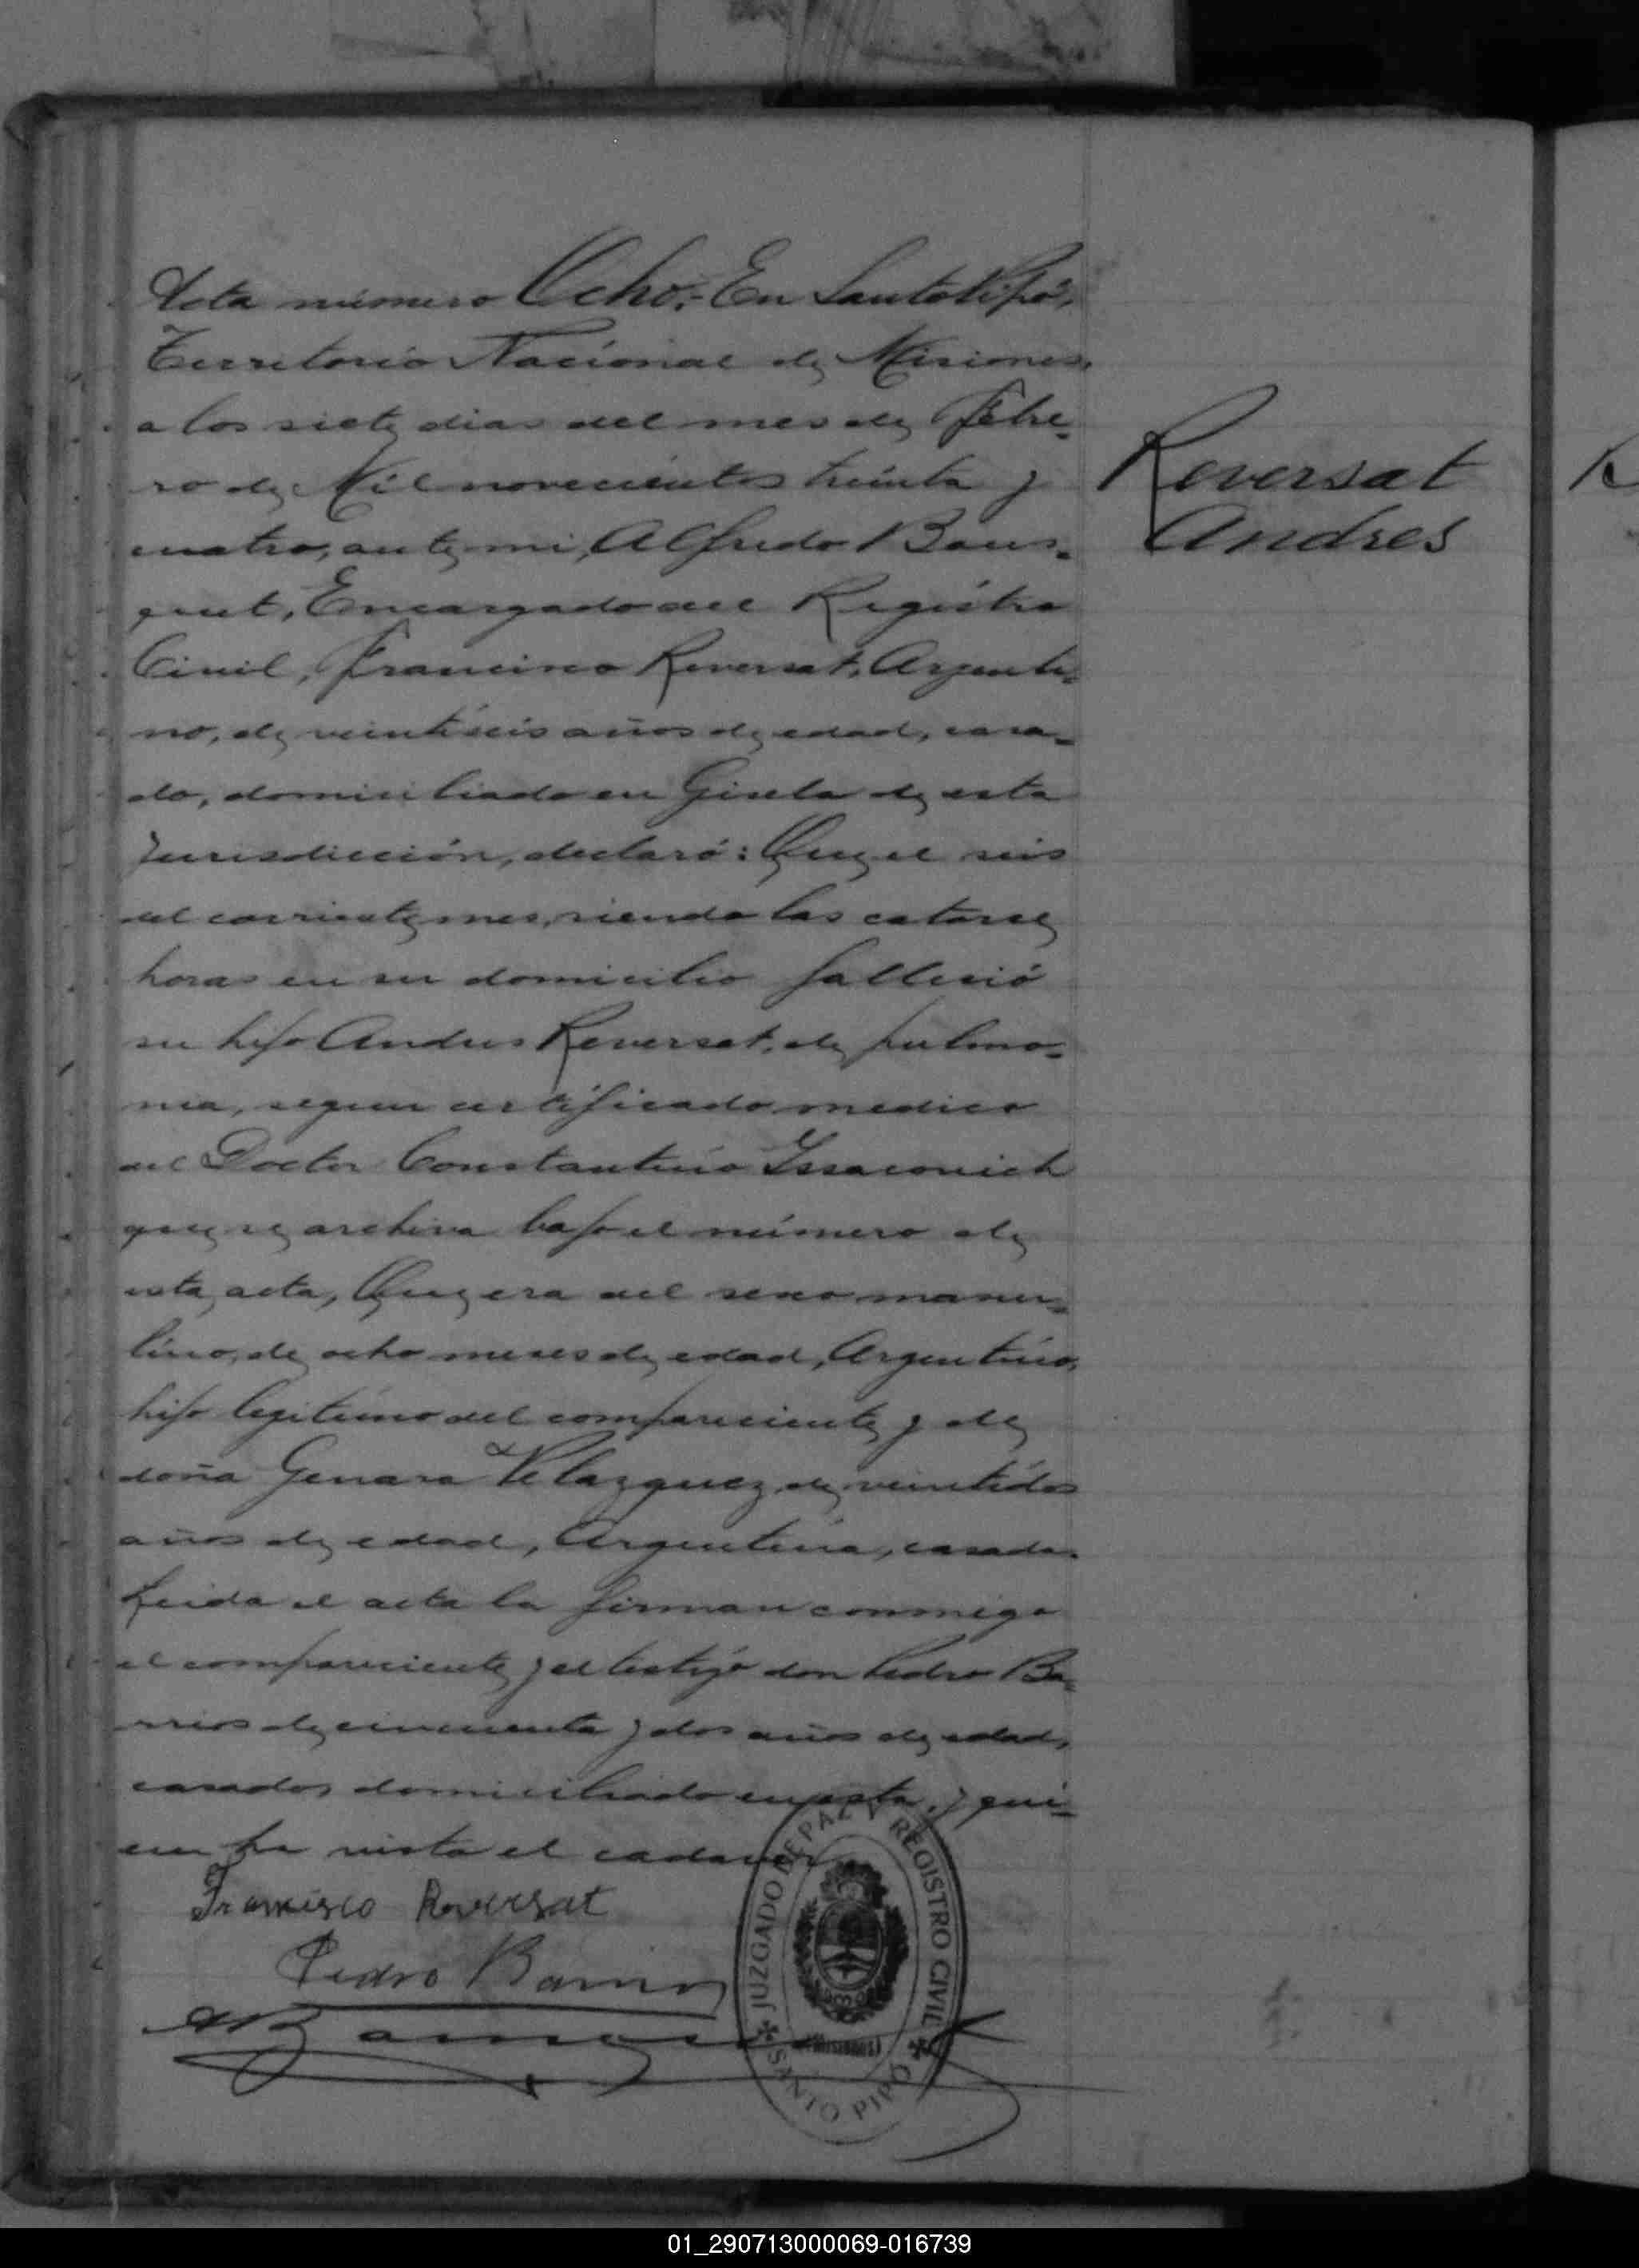 Acta número Ocho.- En Santo Pipó,
Territorio Nacional de Misiones,
a los siete dias del mes de Febre-
ro de Mil novecientos treinta y
cuatro, ante mi, Alfredo Bous-
quet, Encargado del Registro
Civil, Francisco Reversat, Argenti-
no, de veintiseis años de edad, casa-
do, domiciliado en Gisela de esta
Jurisdicción, declaró: Que el seis
del corriente mes, siendo las catorce
horas en su domicilio falleció
su hijo Andres Reversat, de pulmo-
nia, segun certificado medico
del Doctor Constantino Issaconich
que se archiva bajo el número de
esta acta, Que era del sexo mascu-
lino, de ocho meses de edad, Argentino,
hijo legitimo del compareciente y de
doña Genara Velazquez, de veintidos
años de edad, Argentina, casada.
Leida el acta la firman conmigo
el compareciente y el testigo don Pedro Ba-
rrios de cincuenta y dos años de edad,
casado, domiciliado en esta, y qui-
en ha visto el cadaver
Francisco Reversat
Pedro Barrios
Reversat
Andres
JUZGADO DE PAZ Y REGISTRO CIVIL
(MISIONES)
SANTO PIPÓ
01_290713000069-016739